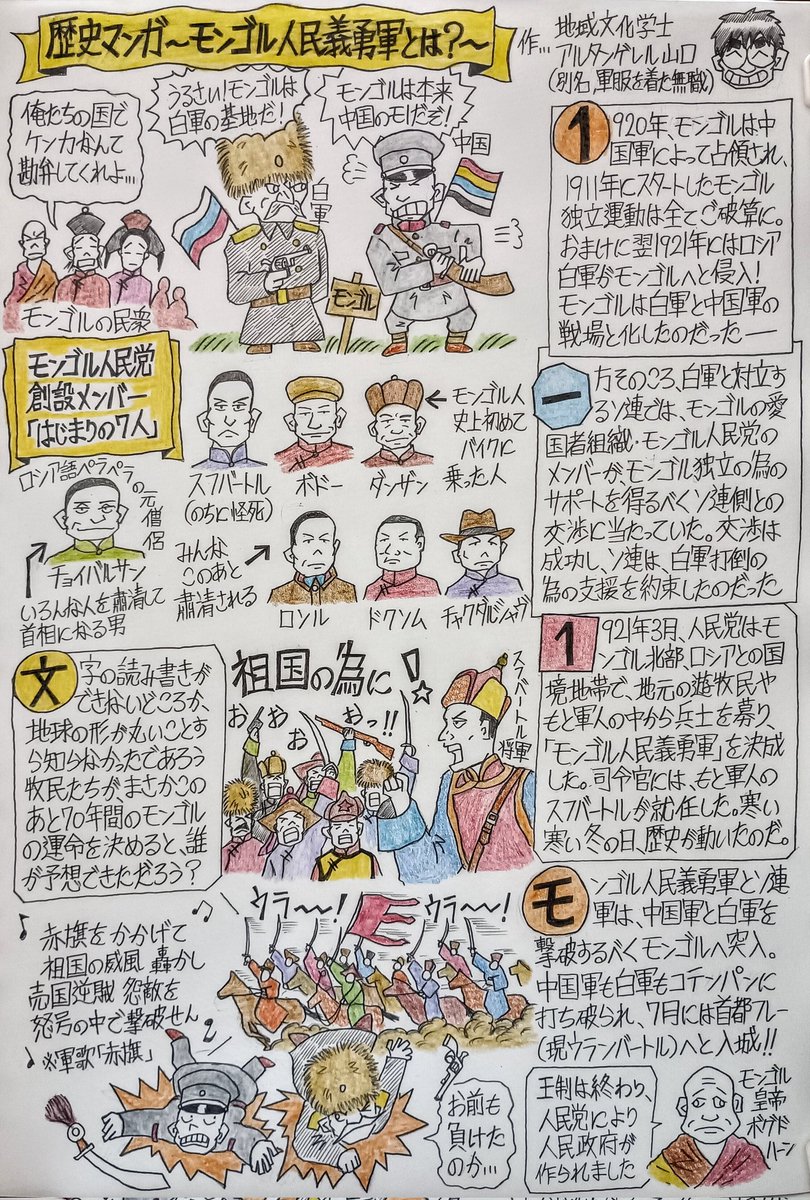 歴史マンガ～モンゴル人民義勇軍とは?～
作…
地域文化学士
アルタンゲレル山口
(別名、軍服を着た無職)
俺たちの国で
ケンカなんて
勘弁してくれよ…
うるさい!モンゴルは
白軍の基地だ!
モンゴルは本来
中国のモンだぞ!
中国
白軍
モンゴル
モンゴルの民衆
1920年、モンゴルは中
国軍によって占領され、
1911年にスタートしたモンゴル
独立運動は全てご破算に。
おまけに翌1921年にはロシア
白軍がモンゴルへと侵入!
モンゴルは白軍と中国軍の
戦場と化したのだった――
モンゴル人民党
創設メンバー
「はじまりの7人」
スフバートル
(のちに怪死)
ボドー
ダンザン
←モンゴル人
史上初めて
バイクに
乗った人
ロシア語ペラペラの
元僧侶
チョイバルサン
いろんな人を粛清して
首相になる男
みんな
このあと
粛清される
ロソル
ドクソム
チャグダルジャヴ
一方そのころ、白軍と対立す
るソ連では、モンゴルの愛
国者組織・モンゴル人民党の
メンバーが、モンゴル独立の為の
サポートを得るべくソ連側との
交渉に当たっていた。交渉は
成功し、ソ連は、白軍打倒の
為の支援を約束したのだった
1921年3月、人民党はモ
ンゴル北部、ロシアとの国
境地帯で、地元の遊牧民や
もと軍人の中から兵士を募り、
「モンゴル人民義勇軍」を決成
した。司令官には、もと軍人の
スフバートルが就任した。寒い
寒い冬の日、歴史が動いたのだ。
文字の読み書きが
できないどころか、
地球の形が丸いことす
ら知らなかったであろう
牧民たちが、まさかこの
あと70年間のモンゴル
の運命を決めると、誰
が予想できただろう?
祖国の為に!
おおおおっ!!
スフバートル
将軍
モンゴル人民義勇軍とソ連
軍は、中国軍と白軍を
撃破するべくモンゴルへ突入。
中国軍も白軍もコテンパンに
打ち破られ、7月には首都フレー
(現ウランバートル)へと入城!!
ウラ～～!
ウラ～～!
♪赤旗をかかげて
祖国の威風 轟かし
売国逆賊 怨敵を
怒号の中で撃破せん
♪※軍歌「赤旗」
お前も
負けた
のか…
王制は終わり、
人民党により
人民政府が
作られました
モンゴル
皇帝
ボグド
ハーン